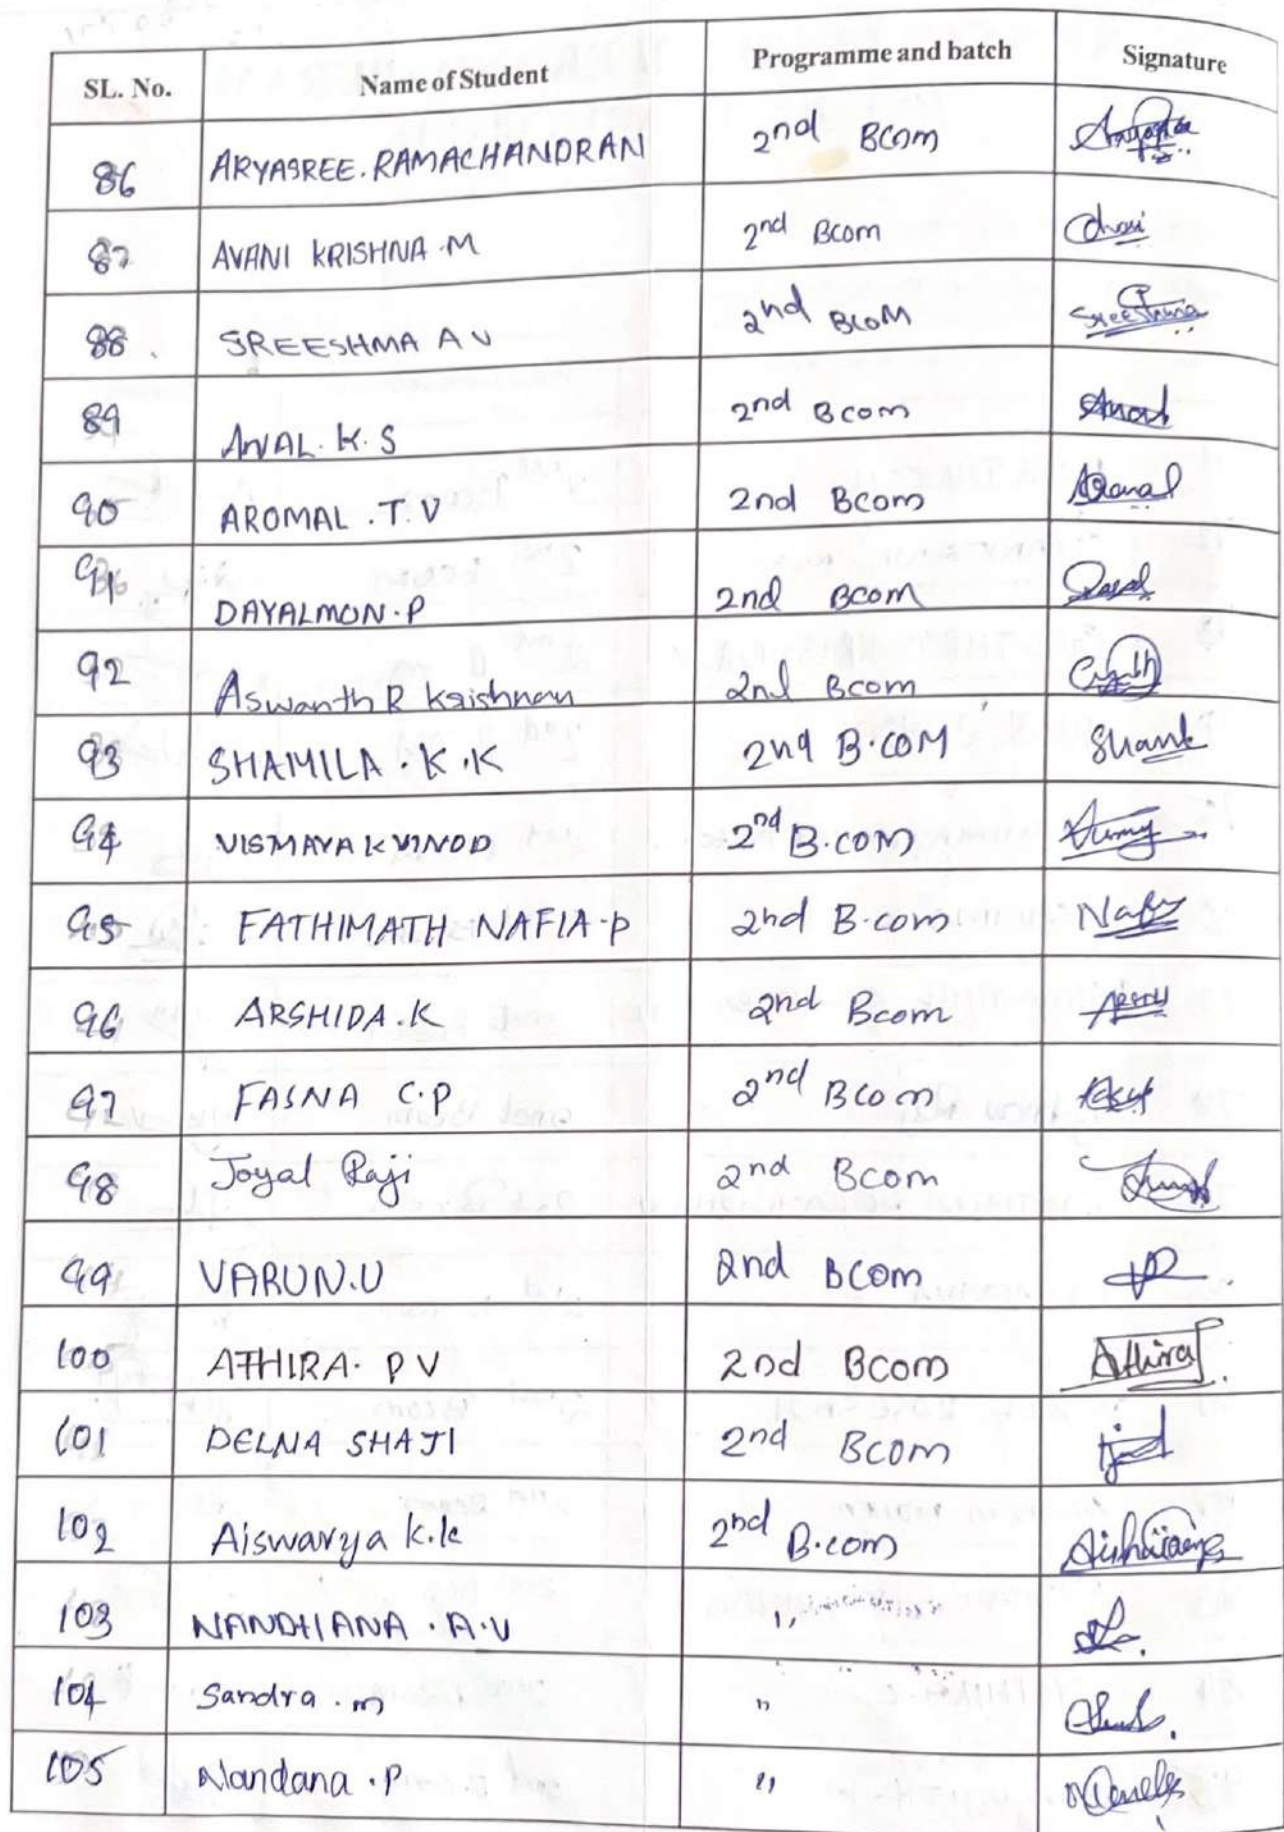 SL. No. Name of Student Programme and batch Signature
86 ARYASREE. RAMACHANDRAN 2nd BCom
87 AVANI KRISHNA .M 2nd Bcom
88 . SREESHMA A V 2nd BCoM Sreeshma
89 ANAL. K. S 2nd Bcom
90 AROMAL .T. V 2nd Bcom Aromal
91 DAYALMON. P 2nd Bcom
92 Aswanth R Krishnan 2nd Bcom
93 SHAMILA . K .K 2nd B.COM
94 VISMAYA K VINOD 2nd B.COM
95 FATHIMATH NAFIA.P 2nd B.com
96 ARSHIDA.K 2nd Bcom
97 FASNA C.P 2nd BCom
98 Joyal Raji 2nd BCom
99 VARUN.U 2nd BCom
100 ATHIRA. P V 2nd BCom Athira
101 DELNA SHAJI 2nd BCom
102 Aiswarya K.k 2nd B.com
103 NANDHANA . A.V ,,
104 Sandra . m "
105 Nandana . P "